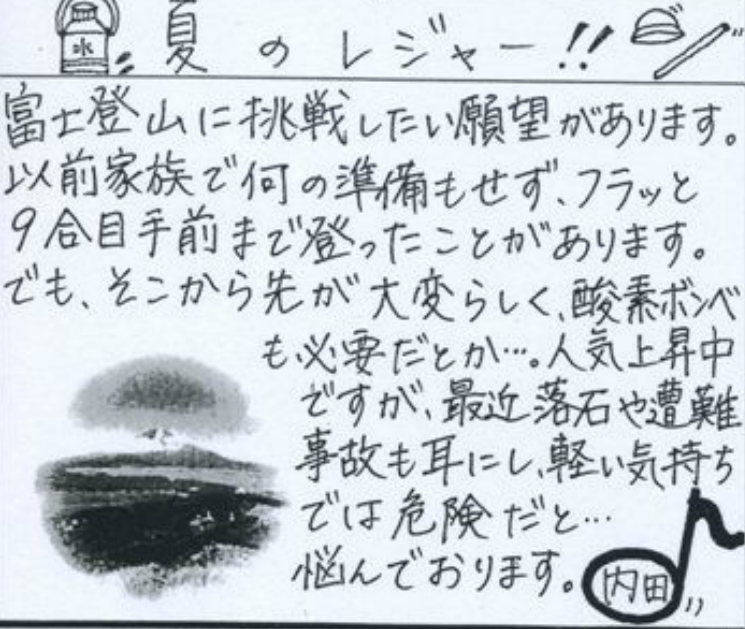 氷
夏のレジャー!!
富士登山に挑戦したい願望があります。
以前家族で何の準備もせず、フラッと
9合目手前まで登ったことがあります。
でも、そこから先が大変らしく、酸素ボンベ
も必要だとか…。人気上昇中
ですが、最近落石や遭難
事故も耳にし、軽い気持ち
では危険だと…
悩んでおります。
内田